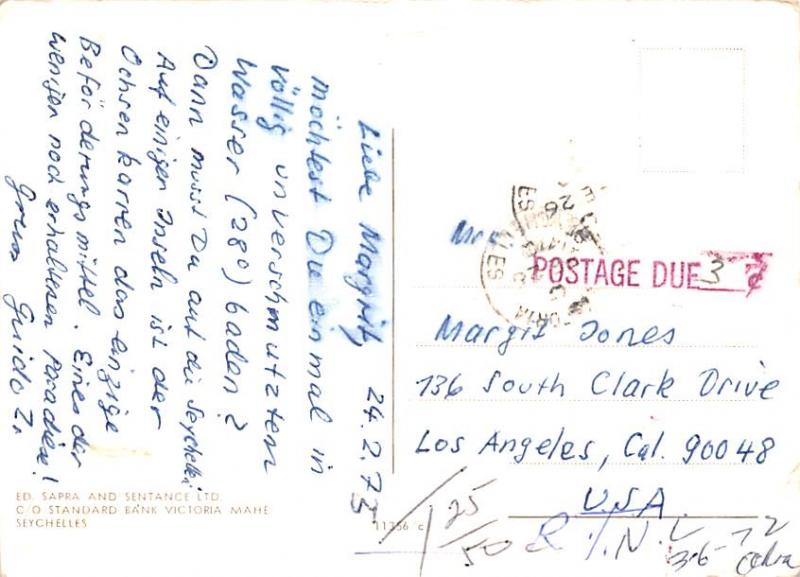 24.2.73
Liebe Margrit,
möchtest Du einmal in
völlig unverschmutztem
Wasser (28°) baden?
Dann musst Du auf die Seychellen
Auf einigen Inseln ist der
Ochsenkarren das einzige
Beförderungsmittel. Eines der
wenigen noch erhaltenen Paradiese!
Gruss Guido Z.
ED. SAPRA AND SENTANCE LTD.
C/O STANDARD BANK VICTORIA MAHE
SEYCHELLES
11356 c
POSTAGE DUE 3 ¢
Margit Jones
736 South Clark Drive
Los Angeles, Cal. 90048
USA
25
/50